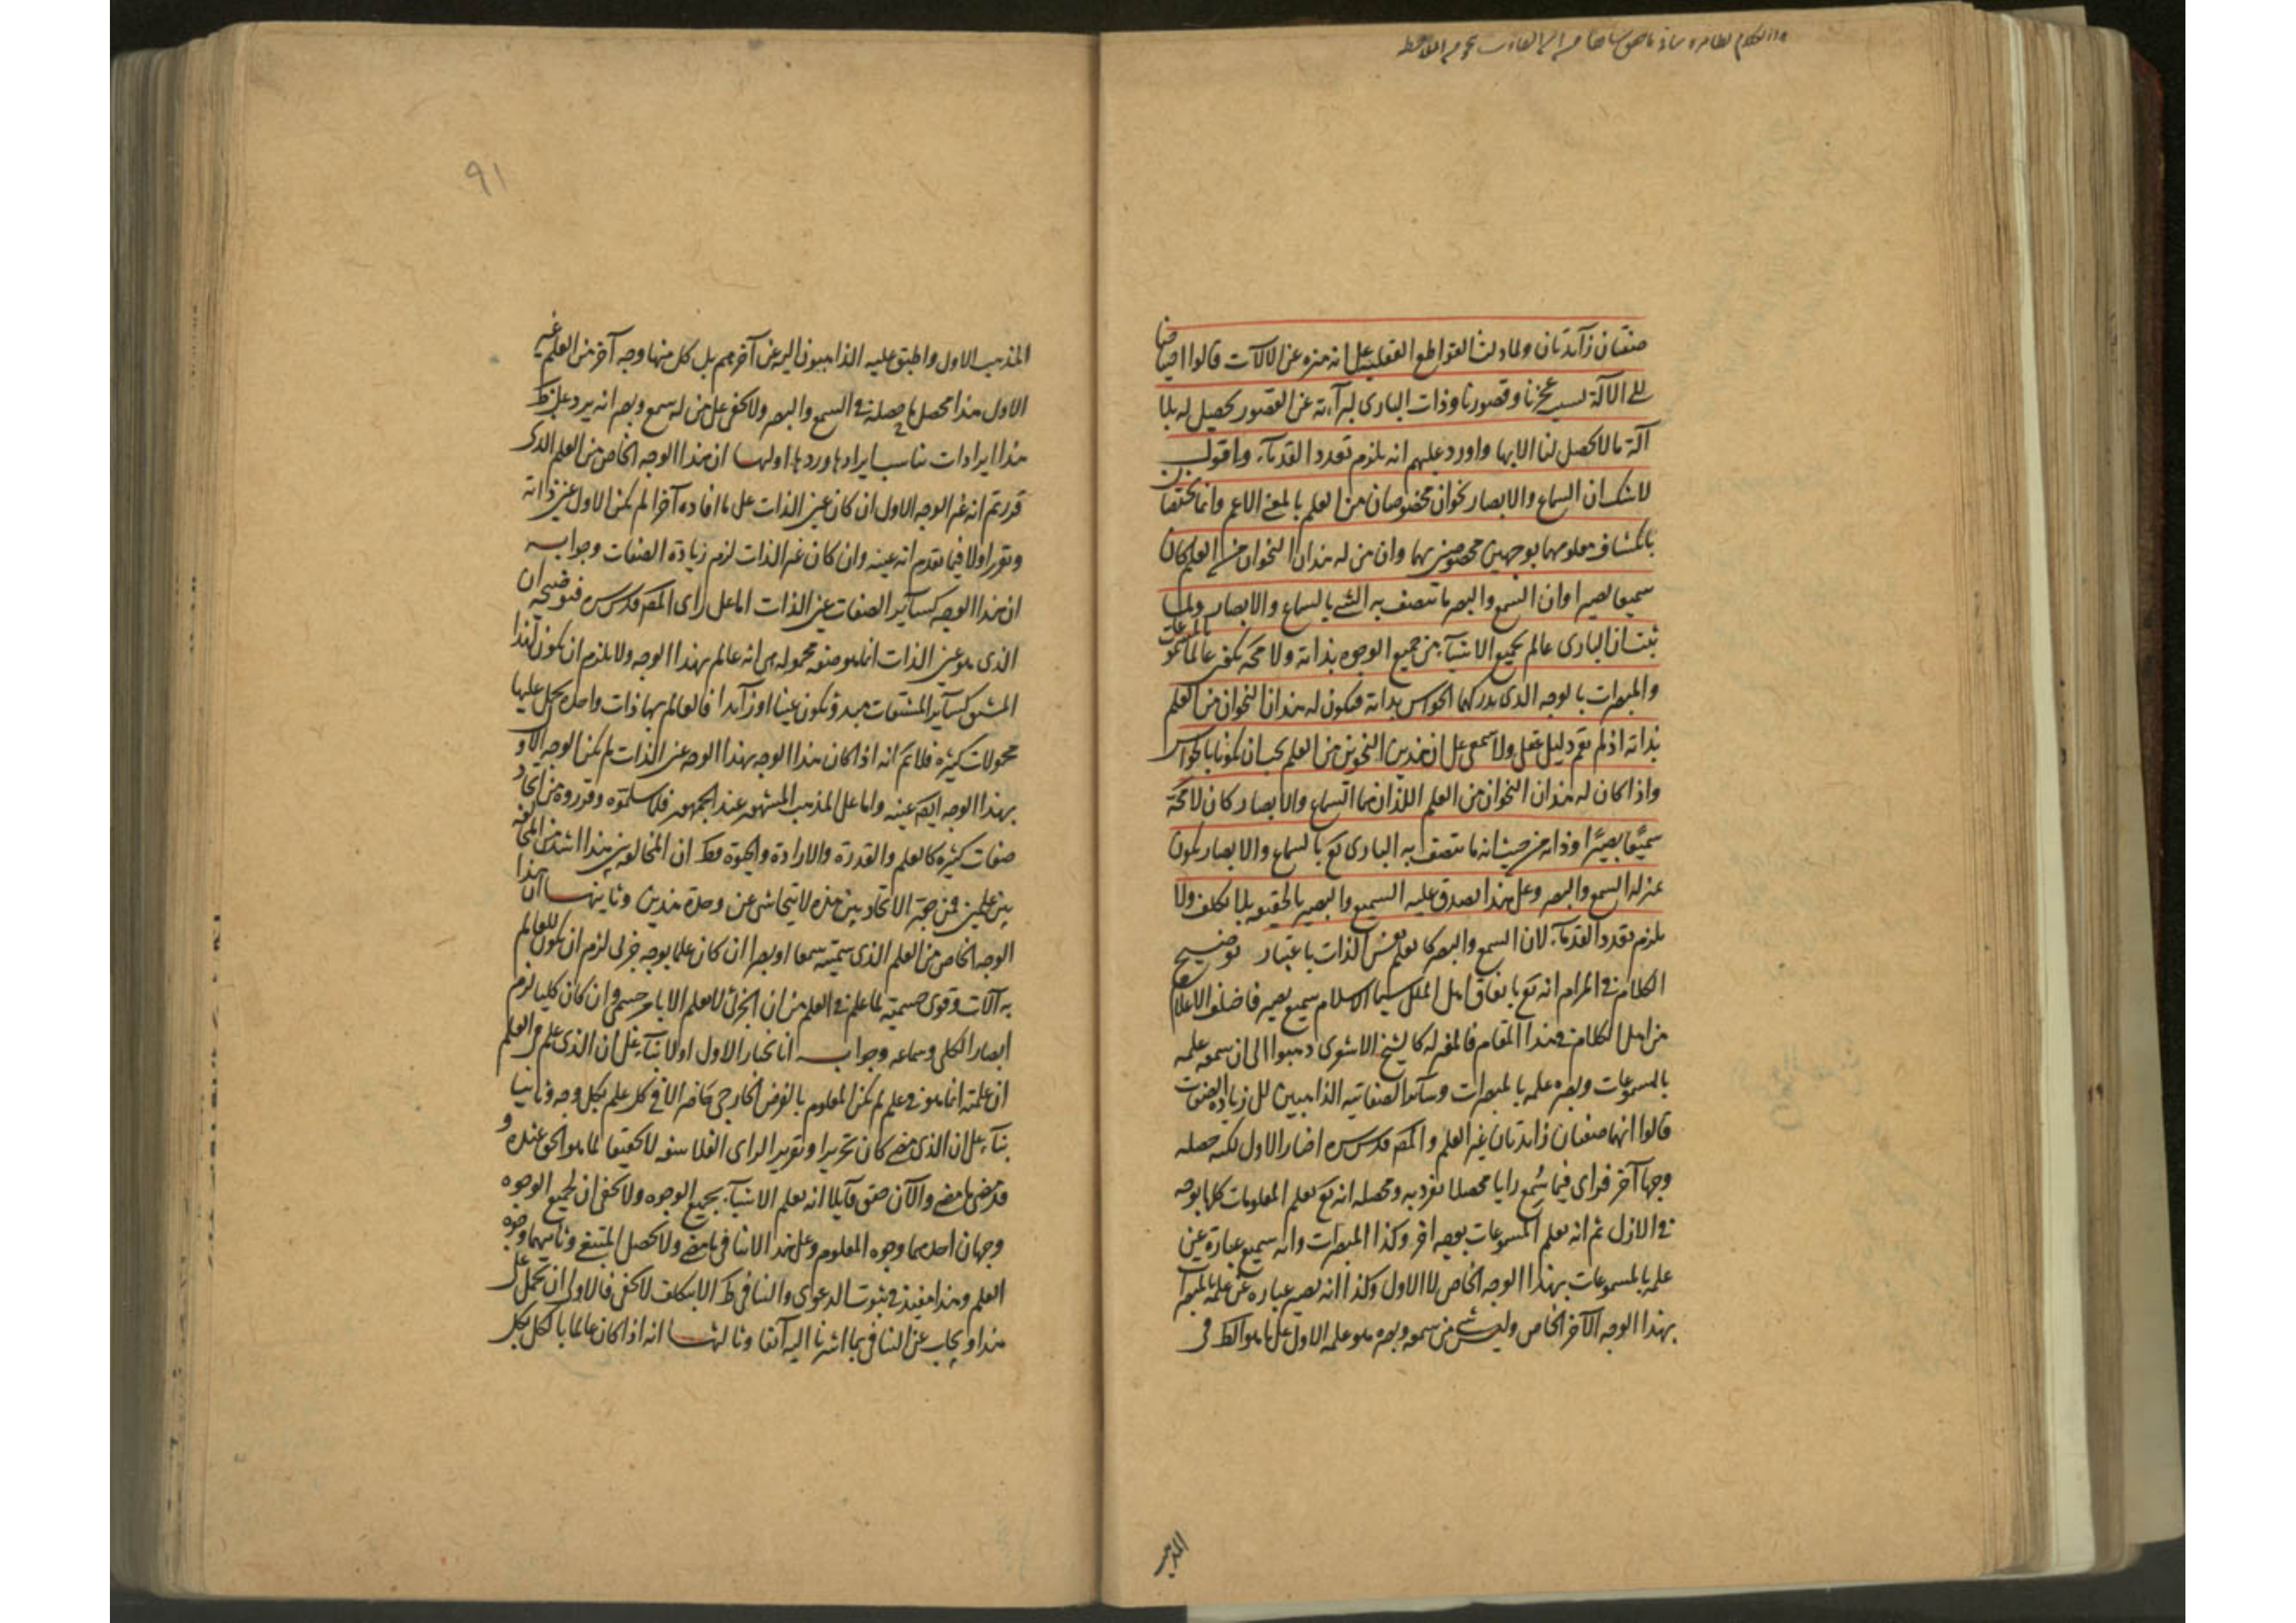 صفتان زآئدتان ولما دلت القواطع العقلية على انه منزه عن الالات قالوا احتياجنا
الى الآلة لسبب عجزنا وقصورنا وذات البارى لبرآءته عن القصور يحصل له بلا
آلة ما لا يحصل لنا الا بها واورد عليهم انه يلزم تعدد القدمآء واقول
لا شك ان السماع والابصار نحوان مخصوصان من العلم بالمعنى الاعم وانما يختصان
بانكشاف معلومهما بوجهين مخصوصين بهما وان من له هذان النحوان من العلم كان
سميعا بصيرا وان السمع والبصر ما تتصف به الشئ بالسماع والابصار ولما
ثبت ان البارى عالم بجميع الاشيآء من جميع الوجوه بذاته ولا محة يكون عالما بالمسموعات
والمبصرات بالوجه الذى يدركهما الحواس بذاته فيكون له هذان النحوان من العلم
بذاته اذ لم يقم دليل عقلى ولا سمعى على ان هذين النحوين من العلم يجب ان يكونا بالحواس
واذا كان له هذان النحوان من العلم اللذان هما السماع والابصار كان لا محة
سميعًا بصيرًا وذاته من حيث انه ما تتصف به البارى تع بالسماع والابصار يكون
عنزله السمع والبصر وعلى هذا يصدق عليه السميع والبصير بالحقيقه بلا تكلف ولا
يلزم تعدد القدمآء لان السمع والبصر كالعلم نفس الذات باعتبار توضيح
الكلام فى المرام انه تع باتفاق اهل الملل سيما الاسلام سميع بصير فاختلف الاعلام
من اهل الكلام فى هذا المقام فالمعتزله كالشيخ الاشعرى ذهبوا الى ان سمعه علمه
بالمسموعات وبصره علمه بالمبصرات وسآئر الصفاتيه الذاهبين الى زيادة الصفات
قالوا انهما صفتان زائدتان غير العلم والمصَ قدس سره اختار الاول لكنه حصله
وجها آخر فراى فيما سُمع رايا محصلا تفرد به ومحصله انه تع يعلم المعلومات كلها بوجه
فى الازل ثم انه يعلم المسموعات بوجه اخر وكذا المبصرات وانه سميع عبارة عن
علمه بالمسموعات بهذا الوجه الخاص لا الاول وكذا انه بصير عباره عن علمه بالمبصرات
بهذا الوجه الآخر الخاص وليس شئ من سمعه وبصره هو علمه الاول على ما هو الظ فى
المذهب
٩١
المذهب الاول واطبق عليه الذاهبون اليه عن آخرهم بل كل منهما وجه آخر من العلم غير
الاول هذا محصل ما حصله فى السمع والبصر ولا يخفى على من له سمع وبصر انه يرد على ظ
هذا ايرادات يناسب ايرادها وردها اولها ان هذا الوجه الخاص من العلم الذى
قررتم انه غير الوجه الاول ان كان عين الذات على ما افاده آخرا لم يكن الاول عين ذاته
وتقرر اولا فيما تقدم انه عينه وان كان غير الذات لزم زيادة الصفات وجوابه
ان هذا الوجه كسآئر الصفات عين الذات اما على راى المصَ قدس سره فتوضيحه ان
الذى هو عين الذات انما هو صفة محمولة هى انه عالم بهذا الوجه ولا يلزم ان يكون لهذا
المشتق كسآئر المشتقات مبدؤ يكون عينا او زآئدا فالعالم بها ذات واحدة يحمل عليها
محمولات كثيره فلا تم انه اذا كان هذا الوجه بهذا الوجه عين الذات لم يكن الوجه الاول
بهذا الوجه ايضَ عينه واما على المذهب المشهور عند الجمهور فلما سلمتوه وقرروه من اتحاد
صفات كثيره كالعلم والقدرة والارادة والحيوة فظ ان المخالفه بين هذا اشد من المخالفه
بين علمين فمن حجة الاتحاد بين هذه لا يتحاشى عن وحدة هذين وثانيها ان هذا
الوجه الخاص من العلم الذى سميته سمعا او بصرا ان كان علما بوجه جزئى لزم ان يكون للعالم
به آلات وقوى جسمية لما علم فى العلم من ان الجزئى لا يعلم الا بامر جسمى وان كان كليا لزم
ابصار الكلى وسماعه وجوابه انا نختار الاول اولا بنآء على ان الذى علم من العلم
ان علمته انما هو فى علم لم يكن المعلوم بالفرض الخارجى حاضرا لا فى كل علم بكل وجه وثانيا
بنآء على ان الذى مضى كان تحريرا وتقريرا لراى الفلاسفه لا تحقيقا لما هو الحق عنده و
قد مضى ما مضى والآن حقق قآئلا انه يعلم الاشيآء بجميع الوجوه ولا يخفى ان لجميع الوجوه
وجهان احدهما وجوه المعلوم وعلى هذا لا ينافى ما مضى ولا يحصل المبتغى وثانيهما وجوه
العلم وهذا مفيد فى ثبوت الدعوى والتنافى ظ الا بتكلف لا يخفى فالاولى ان يحمل على
هذا ويجاب عن التنافى بما اشرنا اليه آنفا وثالثها انه اذا كان عالما بالكل بكل